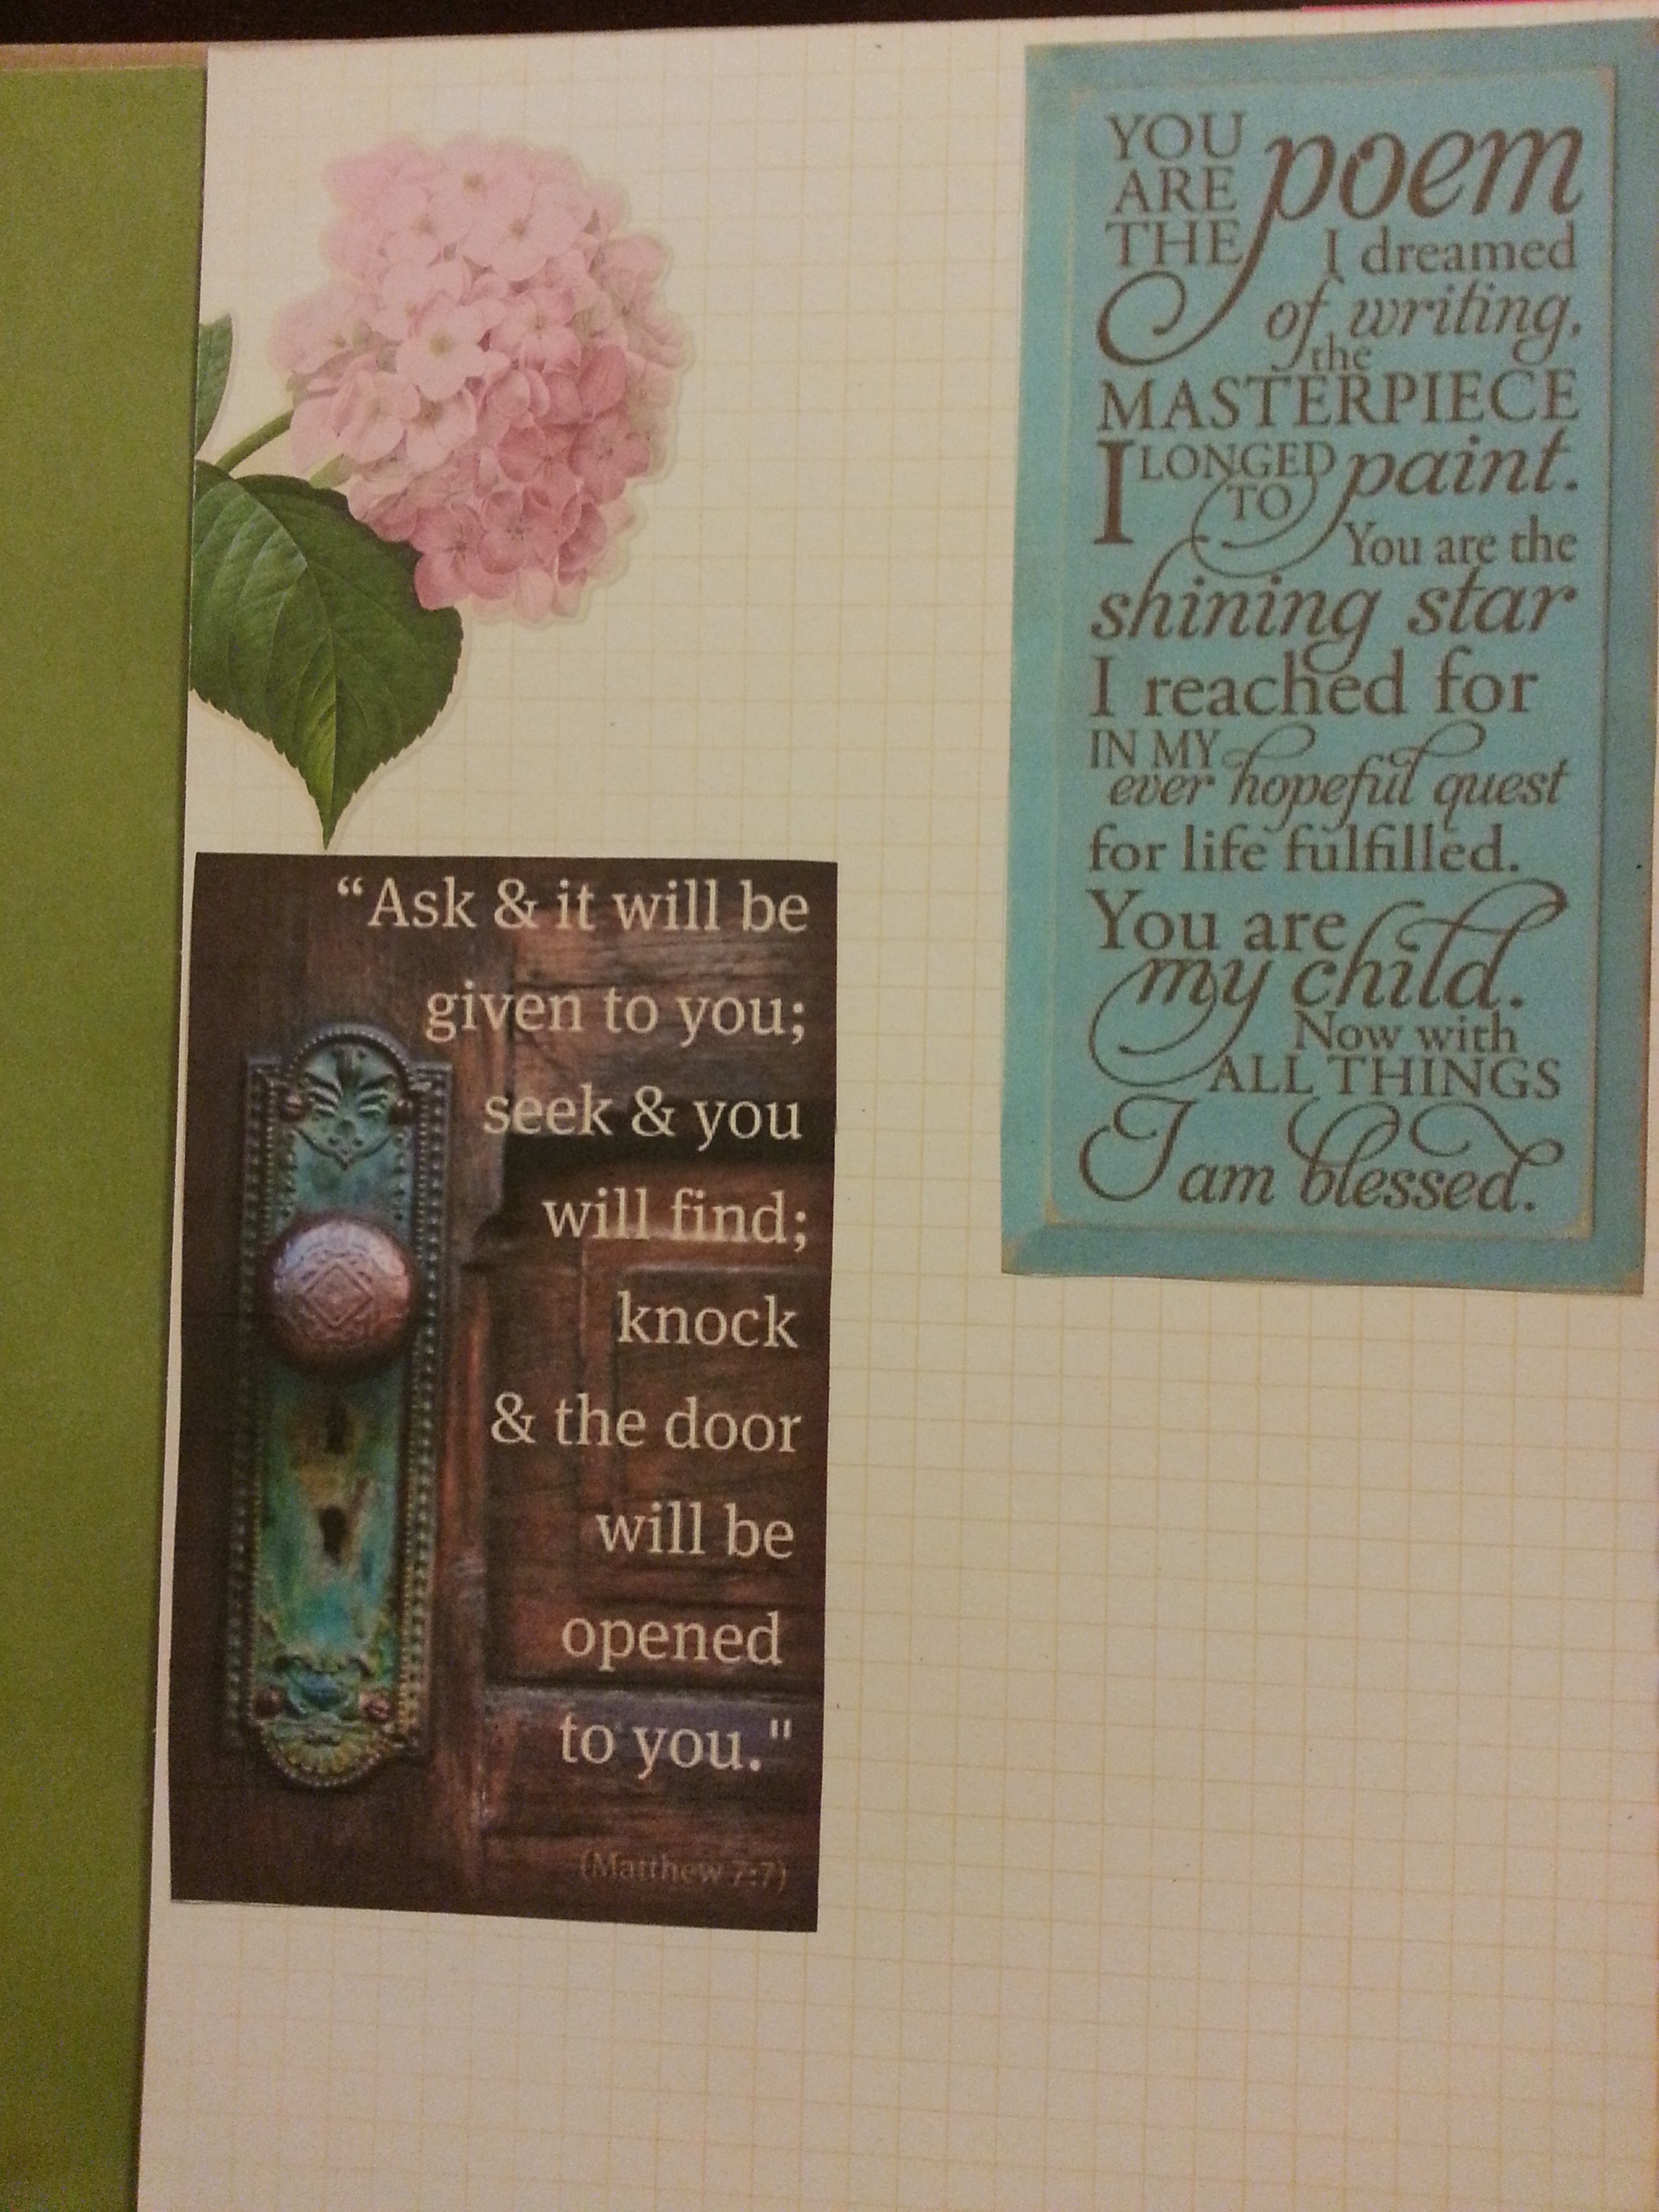 YOU
ARE
THE
poem
I dreamed
of writing,
the
MASTERPIECE
I LONGED
TO
paint.
You are the
shining star
I reached for
IN MY
ever hopeful quest
for life fulfilled.
You are
my child.
Now with
ALL THINGS
I am blessed.
“Ask & it will be
given to you;
seek & you
will find;
knock
& the door
will be
opened
to you."
(Matthew 7:7)